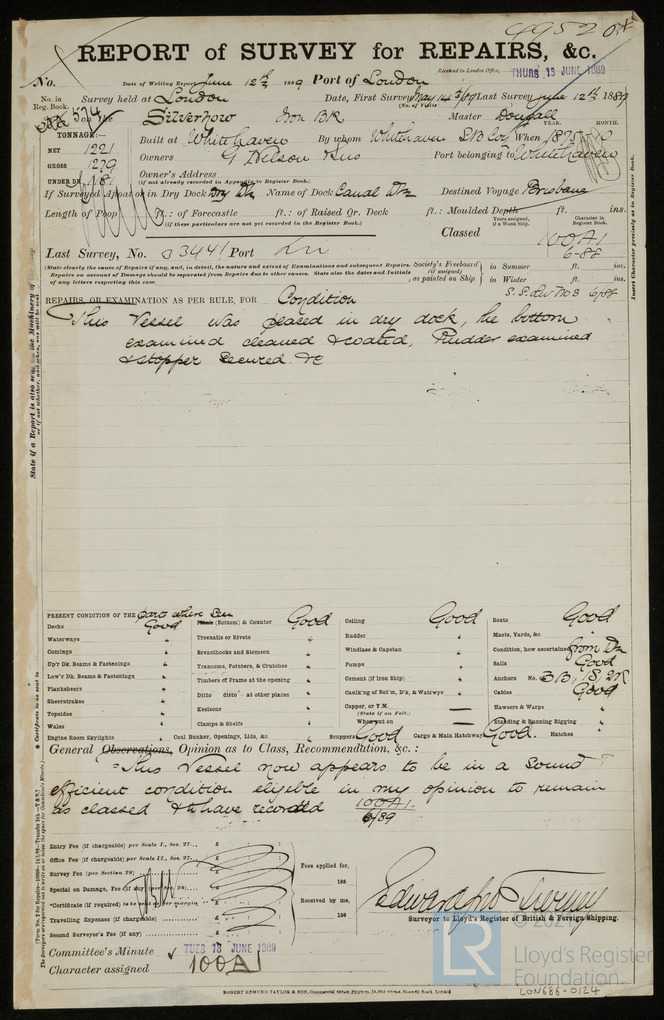 49520
REPORT of SURVEY for REPAIRS, &c.
Received in London Office, THURS 13 JUNE 1889
No. Date of Writing Report June 12th 1889 Port of London
No. in Reg. Book. Survey held at London Date, First Survey May 14th/89 Last Survey June 12th 1889
574 on the Silverhow Iron Bk Master Dougall
TONNAGE:— Built at Whitehaven By whom Whitehaven S B Coy When 1875
YEAR. MONTH.
NET 1221
GROSS 1279 Owners G Nelson Port belonging to Whitehaven
UNDER DK 1181 Owner's Address
(if not already recorded in Appendix to Register Book.)
If Surveyed Afloat or in Dry Dock Dry Dk Name of Dock Canal Dk Destined Voyage Brisbane
Length of Poop ft.: of Forecastle ft.: of Raised Qr. Deck ft.: Moulded Depth ft. ins.
(if these particulars are not yet recorded in the Register Book.)
Years assigned, if a Wood Ship. Character in Register Book.
Classed 100A1
6-88
Last Survey, No. 3441 Port
(State clearly the cause of Repairs if any, and, in detail, the nature and extent of Examinations and subsequent Repairs. Repairs on account of Damage should be separated from Repairs due to other causes. State also the dates and Initials of any letters respecting this case.
Society's Freeboard (if assigned) as painted on Ship { in Summer ft. ins.
in Winter ft. ins.
REPAIRS, OR EXAMINATION AS PER RULE, FOR Condition
This Vessel was placed in dry dock, the bottom
examined cleaned & coated, Rudder examined
& stopper secured &c
PRESENT CONDITION OF THE parts where seen
Decks Good
Waterways "
Comings "
Up'r Dk. Beams & Fastenings "
Low'r Dk. Beams & Fastenings "
Planksheers "
Sheerstrakes "
Topsides "
Wales "
Engine Room Skylights "
Plank (Bottom) & Counter Good
Treenails or Rivets "
Breasthooks and Stemson "
Transoms, Pointers, & Crutches "
Timbers of Frame at the opening "
Ditto ditto at other places "
Keelsons "
Clamps & Shelfs "
Coal Bunker, Openings, Lids, &c. "
Ceiling Good
Rudder "
Windlass & Capstan "
Pumps "
Cement (if Iron Ship) "
Caulk'ng of Bot'm, D'k, & Watrwys "
Copper, or Y.M. —
(State if on Felt.)
When put on —
Scuppers Good Cargo & Main Hatchway Good.
Boats Good
Masts, Yards, &c. "
Condition, how ascertained from Dk
Sails Good
Anchors No. 3B, 1S, 2K
Cables Good
Hawsers & Warps "
Standing & Running Rigging "
Hatches "
General Observations, Opinion as to Class, Recommendation, &c. :
This Vessel now appears to be in a sound &
efficient condition eligible in my opinion to remain
as classed & to have recorded 100A1
6/89
Entry Fee (if chargeable) per Scale I., Sec. 27... £
Office Fee (if chargeable) per Scale II., Sec. 27... £
Survey Fee (per Section 28) £
Special on Damage, Fee (if any) (per Sec. 28) £
*Certificate (if required) to be sent as per margin
Travelling Expenses (if chargeable) £
Second Surveyor's Fee (if any) £
Fees applied for,
188
Received by me,
188
Surveyor to Lloyd's Register of British & Foreign Shipping.
Committee's Minute TUES 18 JUNE 1889
Character assigned 100A1
ROBERT EDMUND TAYLOR & SON, Commercial Steam Printers, 19, Old Street, Goswell Road, London
LR
© 2021
Lloyd's Register
Foundation
LON686-0124
Insert Character precisely as in Register Book.